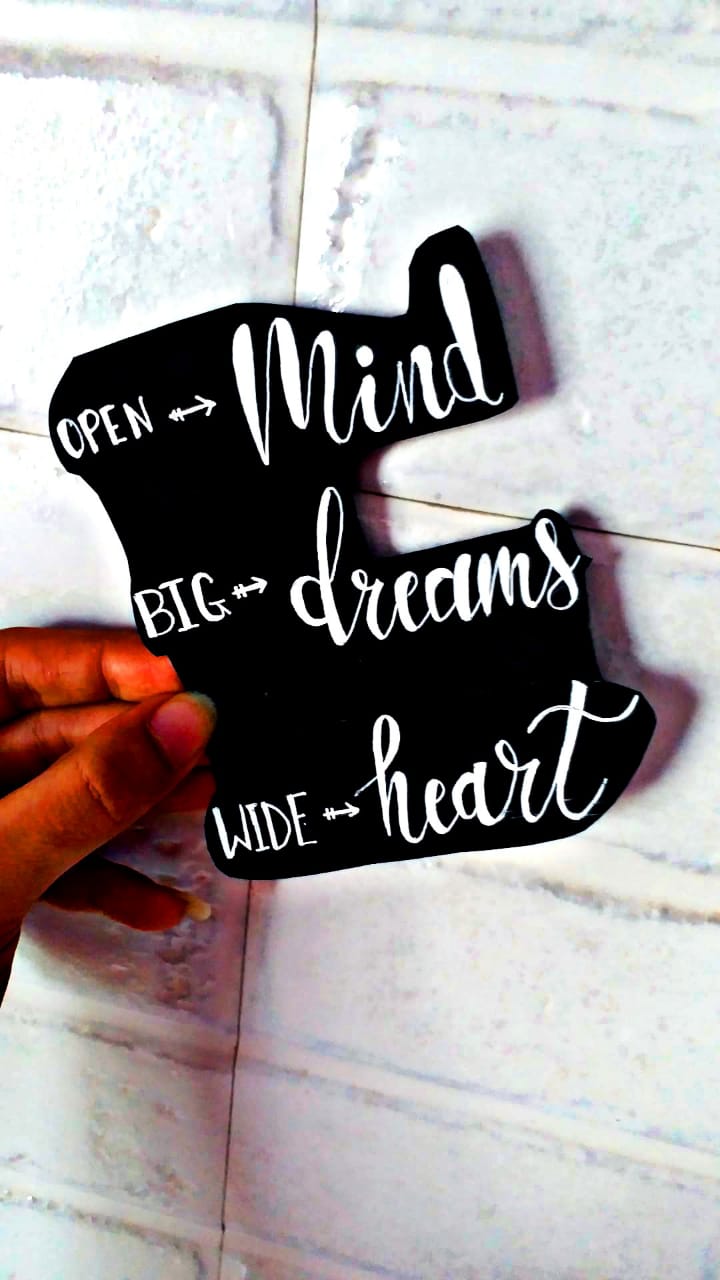 OPEN ⤖ Mind
BIG ⤖ dreams
WIDE ⤖ heart